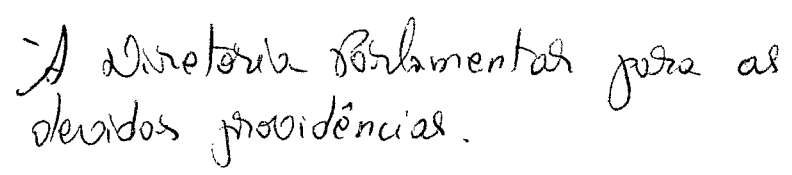 À Diretoria Parlamentar para as
devidas providências.